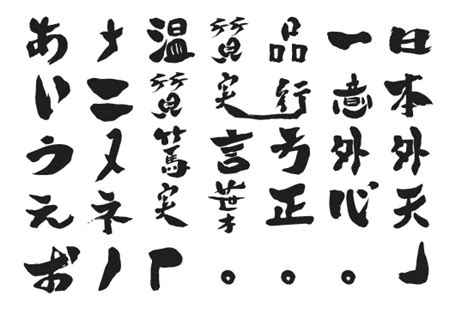 日本外天」
一意外心。
品行方正。
質実言葉。
温質篤実「
ナニヌネノ
あいうえお